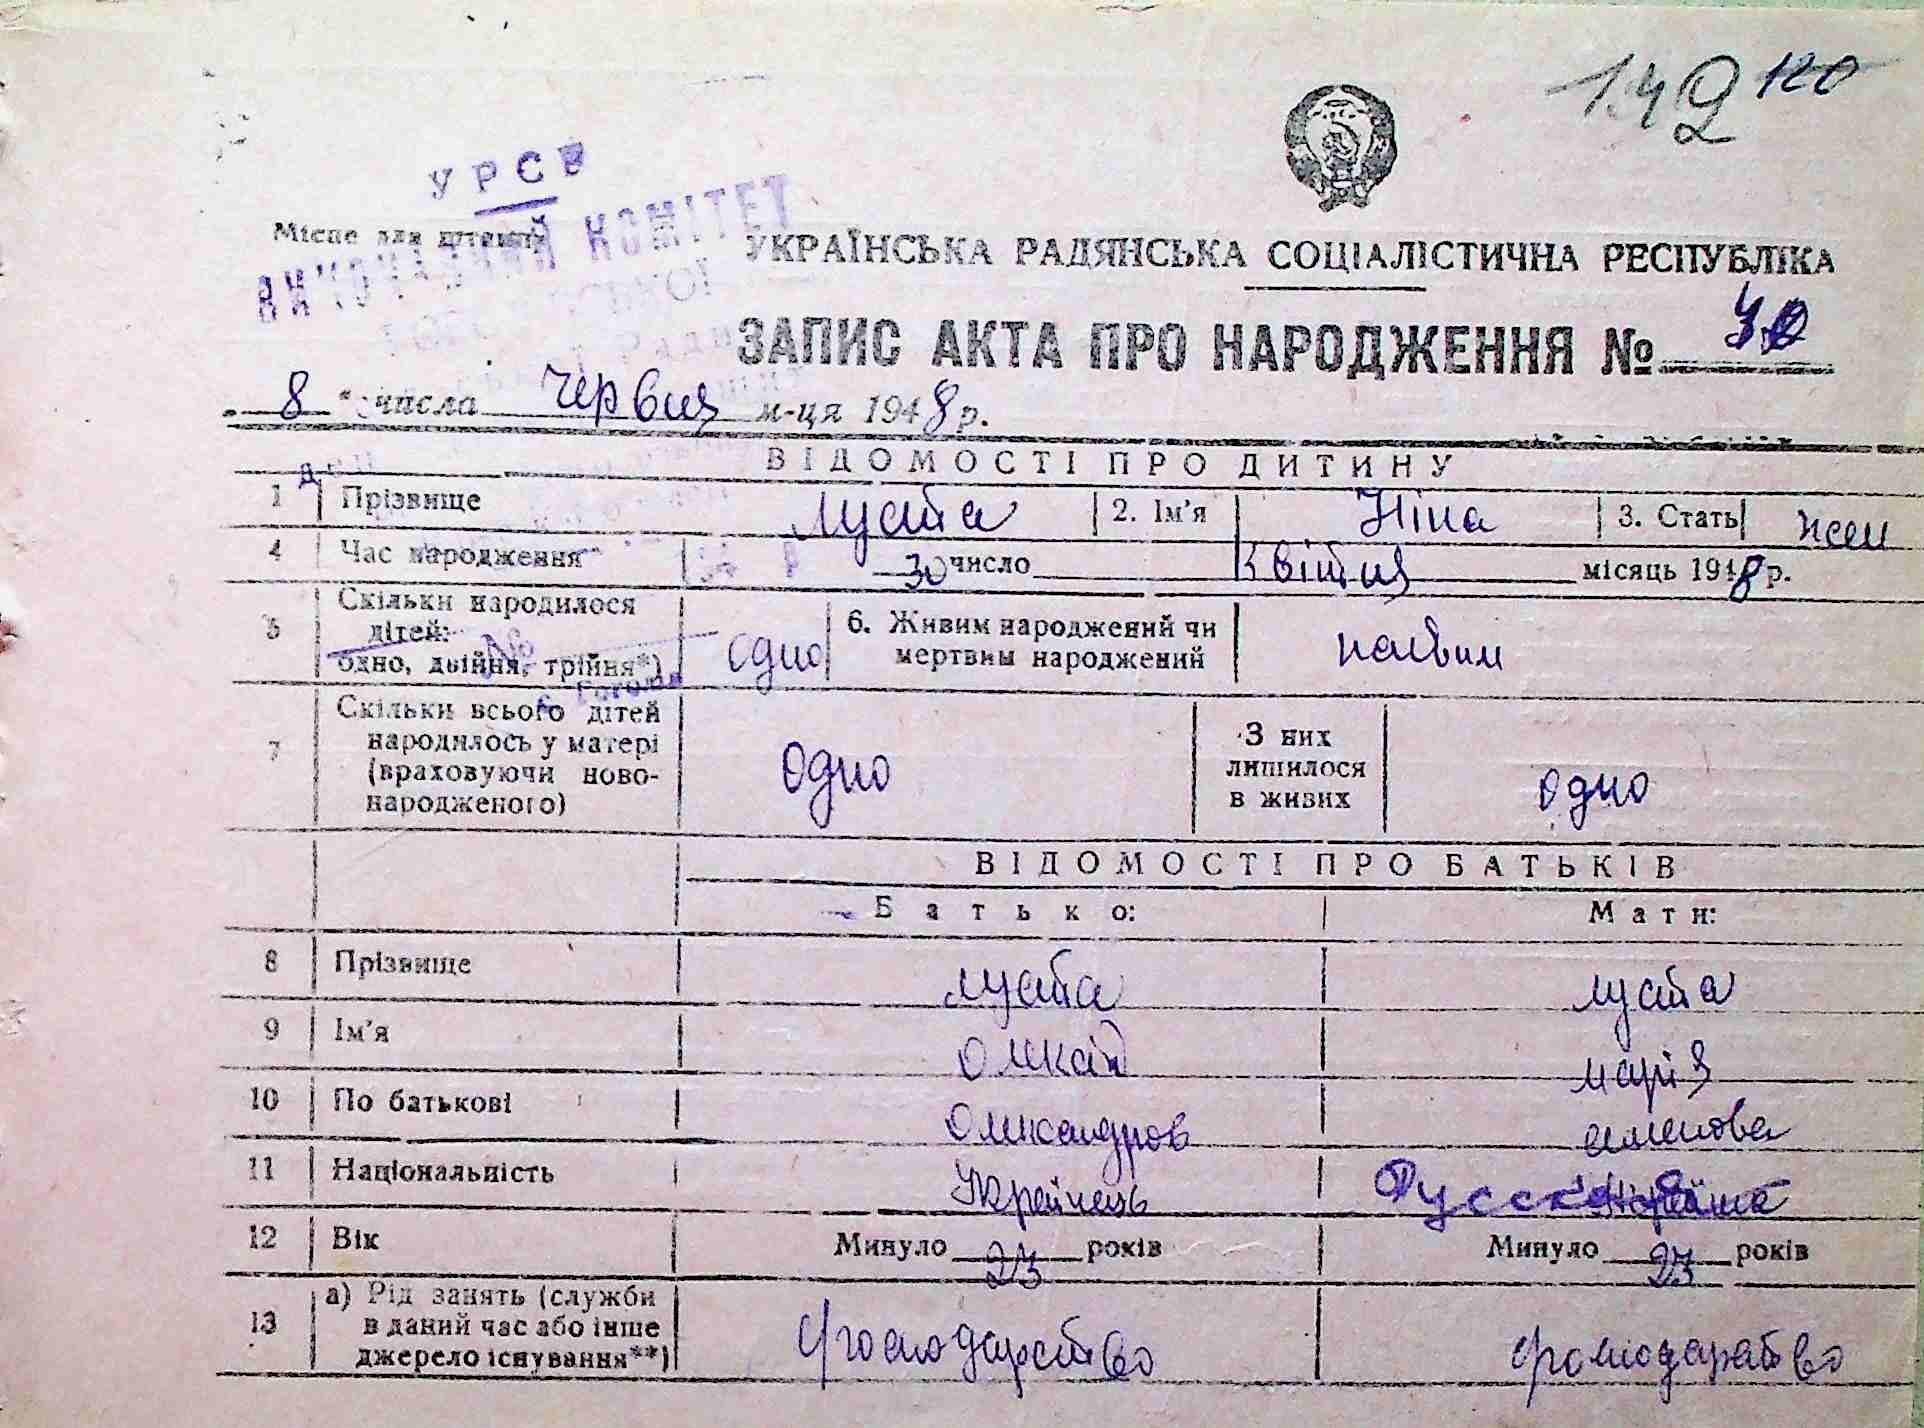 142 120
УРСР
Місце для штампу
ВИКОНАВЧИЙ КОМІТЕТ
УКРАЇНСЬКА РАДЯНСЬКА СОЦІАЛІСТИЧНА РЕСПУБЛІКА
ЗАПИС АКТА ПРО НАРОДЖЕННЯ №
„8" числа червня м-ця 1948 р.
ВІДОМОСТІ ПРО ДИТИНУ
1 Прізвище Луста 2. Ім'я Ніна 3. Стать жен
4 Час народження 30 число квітня місяць 1948 р.
5 Скільки народилося дітей: одно, двійня, трійня*) одно 6. Живим народжений чи мертвим народжений
7 Скільки всього дітей народилось у матері (враховуючи новонародженого) одно З них лишилося в живих одно
ВІДОМОСТІ ПРО БАТЬКІВ
Батько: Мати:
8 Прізвище Луста Луста
9 Ім'я Марія
10 По батькові Олександров
11 Національність Українець
12 Вік Минуло 23 років Минуло 23 років
13 а) Рід занять (служби в даний час або інше джерело існування**)